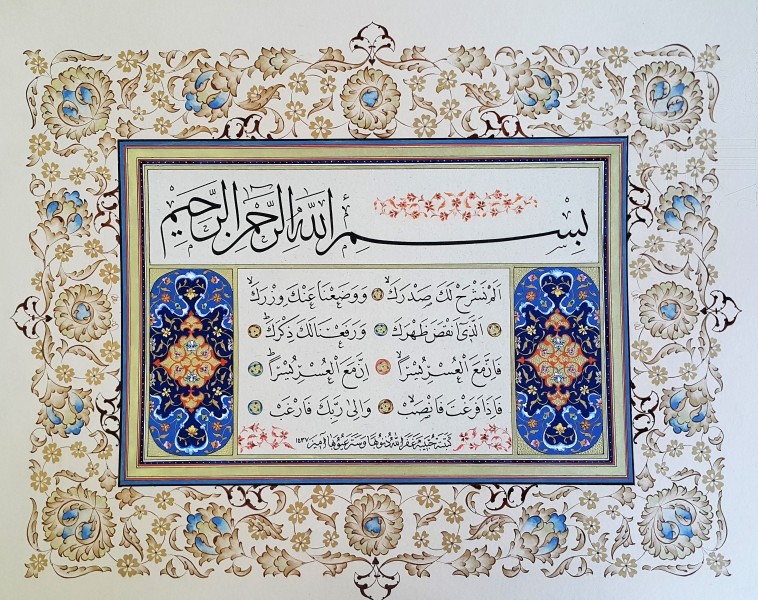 بِسْمِ اللهِ الرَّحْمٰنِ الرَّحِيمِ
اَلَمْ نَشْرَحْ لَكَ صَدْرَكَ وَوَضَعْنَا عَنْكَ وِزْرَكَ
اَلَّذِى اَنْقَضَ ظَهْرَكَ وَرَفَعْنَا لَكَ ذِكْرَكَ
فَاِنَّ مَعَ الْعُسْرِ يُسْرًا اِنَّ مَعَ الْعُسْرِ يُسْرًا
فَاِذَا فَرَغْتَ فَانْصَبْ وَاِلٰى رَبِّكَ فَارْغَبْ
كتبته غفر الله ذنوبها وستر عيوبها ١٤٣٧